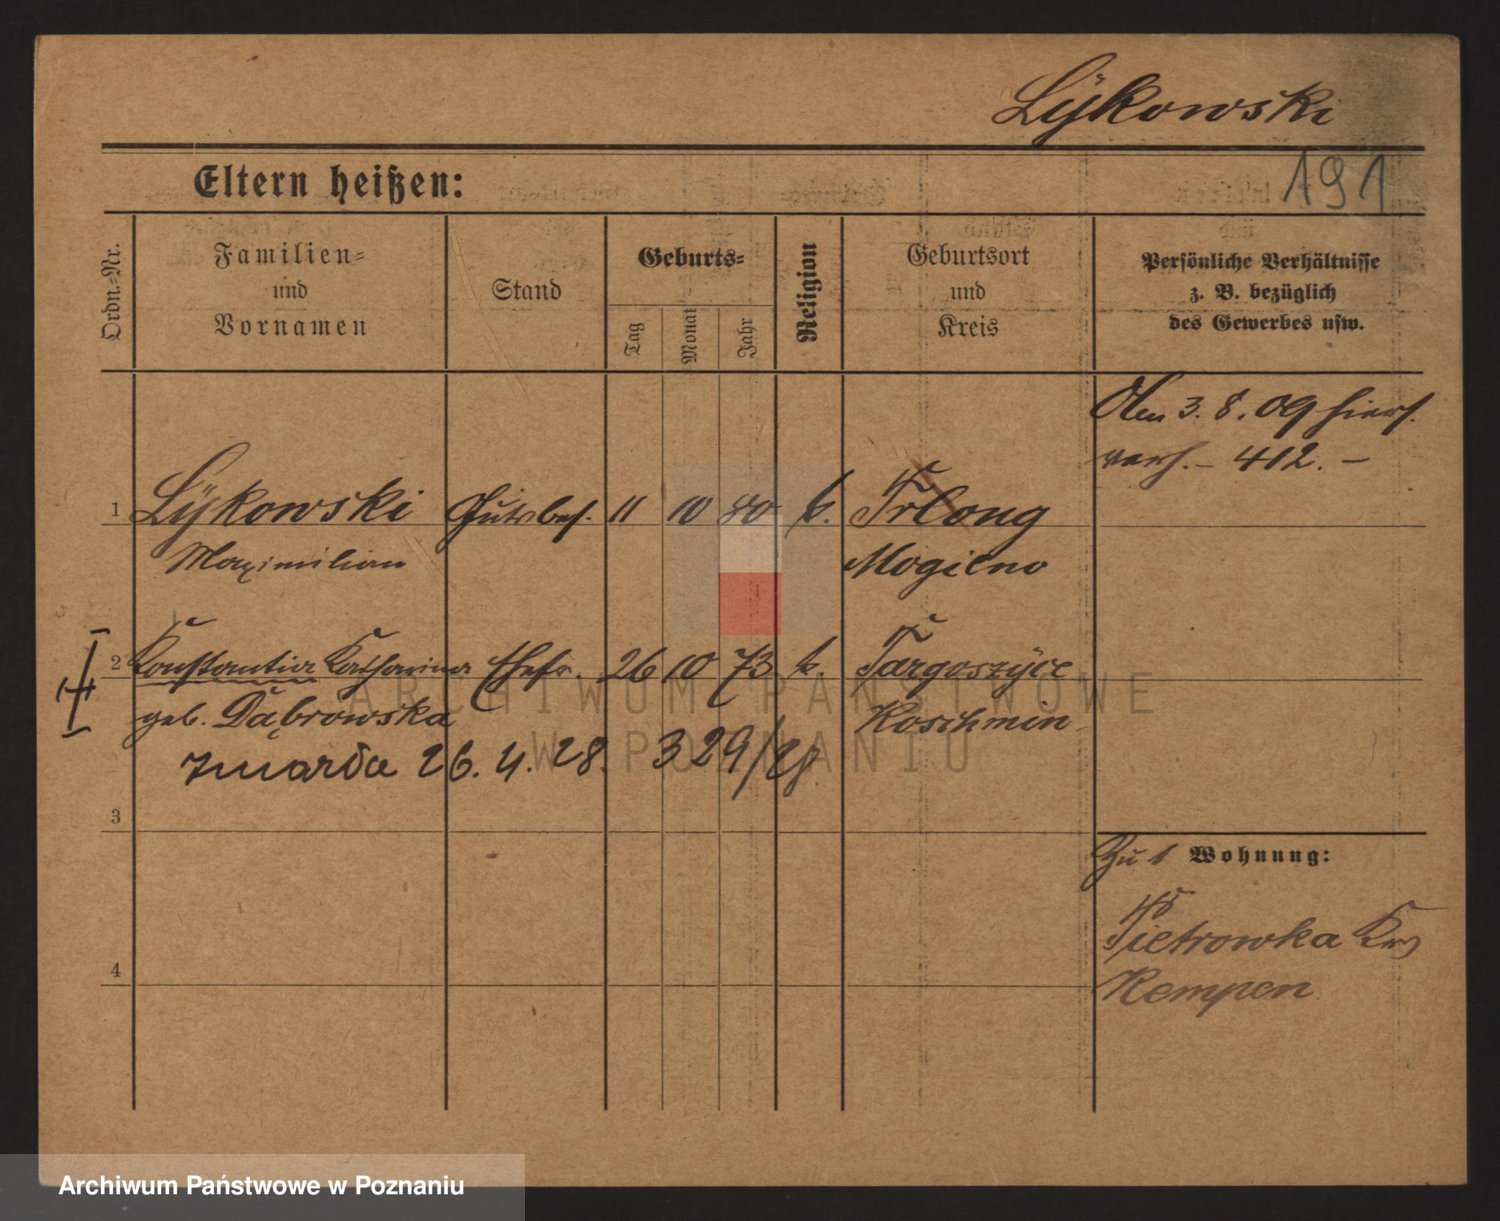 Lÿkowski
191
Eltern heißen:
Ordn.-Nr.
Familien-
und
Vornamen
Stand
Geburts-
Tag
Monat
Jahr
Religion
Geburtsort
und
Kreis
Persönliche Verhältnisse
z. B. bezüglich
des Gewerbes usw.
Den 3. 8. 09 hiers.
verh. – 412. –
1 Lÿkowski Gutsbes. 11 10 80 k. Trlong
Maximilian Mogilno
2 Konstantia Katharina Ehefr. 26 10 73 k. Targoszÿce
geb. Dąbrowska Koschmin
zmarła 26. 4. 28. 329/
3
Zu 1 Wohnung:
Pietrowka Krs
Kempen
4
ARCHIWUM PAŃSTWOWE
W POZNANIU
Archiwum Państwowe w Poznaniu